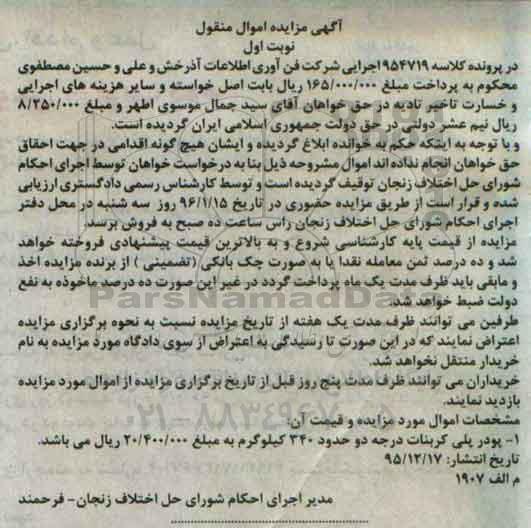 آگهی مزایده اموال منقول
نوبت اول
در پرونده کلاسه ۹۵۴۷۱۹ اجرایی شرکت فن آوری اطلاعات آذرخش و علی و حسین مصطفوی
محکوم به پرداخت مبلغ ۱۶۵/۰۰۰/۰۰۰ ریال بابت اصل خواسته و سایر هزینه های اجرایی
و خسارت تاخیر تادیه در حق خواهان آقای سید جمال موسوی اطهر و مبلغ ۸/۲۵۰/۰۰۰
ریال نیم عشر دولتی در حق دولت جمهوری اسلامی ایران گردیده است.
و با توجه به اینکه حکم به خوانده ابلاغ گردیده و ایشان هیچ گونه اقدامی در جهت احقاق
حق خواهان انجام نداده اند اموال مشروحه ذیل بنا به درخواست خواهان توسط اجرای احکام
شورای حل اختلاف زنجان توقیف گردیده است و توسط کارشناس رسمی دادگستری ارزیابی
شده و قرار است از طریق مزایده حضوری در تاریخ ۹۶/۱/۱۵ روز سه شنبه در محل دفتر
اجرای احکام شورای حل اختلاف زنجان راس ساعت ده صبح به فروش برسد.
مزایده از قیمت پایه کارشناسی شروع و به بالاترین قیمت پیشنهادی فروخته خواهد
شد و ده درصد ثمن معامله نقدا یا به صورت چک بانکی (تضمینی) از برنده مزایده اخذ
و مابقی باید ظرف مدت یک ماه پرداخت گردد در غیر این صورت ده درصد ماخوذه به نفع
دولت ضبط خواهد شد.
طرفین می توانند ظرف مدت یک هفته از تاریخ مزایده نسبت به نحوه برگزاری مزایده
اعتراض نمایند که در این صورت تا رسیدگی به اعتراض از سوی دادگاه مورد مزایده به نام
خریدار منتقل نخواهد شد.
خریداران می توانند ظرف مدت پنج روز قبل از تاریخ برگزاری مزایده از اموال مورد مزایده
بازدید نمایند.
مشخصات اموال مورد مزایده و قیمت آن:
۱- پودر پلی کربنات درجه دو حدود ۳۴۰ کیلوگرم به مبلغ ۲۰/۴۰۰/۰۰۰ ریال می باشد.
تاریخ انتشار: ۹۵/۱۲/۱۷
م الف ۱۹۰۷
مدیر اجرای احکام شورای حل اختلاف زنجان- فرحمند
ParsNamadData
۰۲۱-۸۸۳۴۹۶۷۰